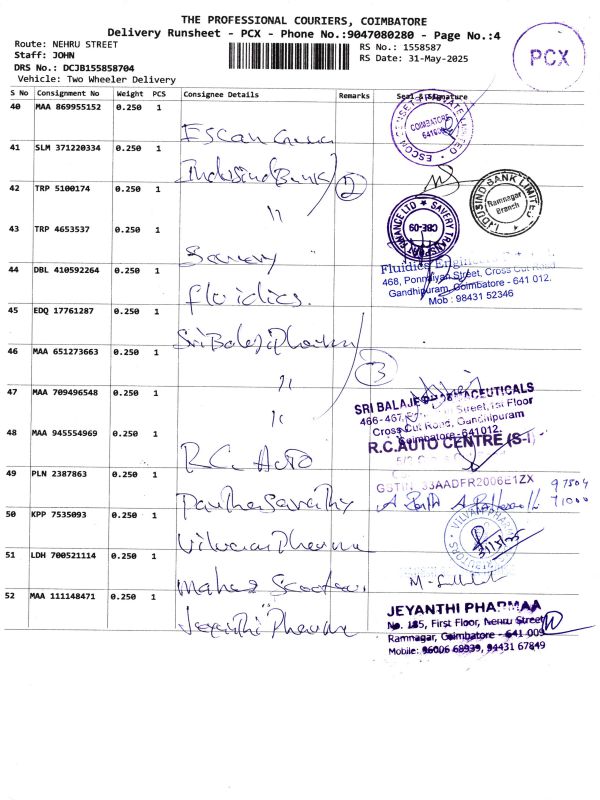 THE PROFESSIONAL COURIERS, COIMBATORE
Delivery Runsheet - PCX - Phone No.:9047080280 - Page No.:4
Route: NEHRU STREET
Staff: JOHN
DRS No.: DCJB155858704
Vehicle: Two Wheeler Delivery
RS No.: 1558587
RS Date: 31-May-2025
PCX
S No Consignment No Weight PCS Consignee Details Remarks Seal & Signature
40 MAA 869955152 0.250 1
Escon
COIMBATORE
41 SLM 371220334 0.250 1
IndusInd Bank
2
42 TRP 5100174 0.250 1
"
INDUSIND BANK LIMITED
Ramnagar
Branch
43 TRP 4653537 0.250 1
Savery
SAVERY TRANSPORT FINANCE LTD
CBE-09
44 DBL 410592264 0.250 1
Fluidics.
Fluidics
468, Ponnaiyan Street, Cross Cut Road
Gandhipuram, Coimbatore - 641 012.
Mob : 98431 52346
45 EDQ 17761287 0.250 1
Sri Balaji Pharma
3
46 MAA 651273663 0.250 1
"
47 MAA 709496548 0.250 1
"
SRI BALAJE PHARMACEUTICALS
466-467, Street, Ist Floor
Cross Cut Road, Gandhipuram
Coimbatore - 641 012.
48 MAA 945554969 0.250 1
R.C. Auto
R.C. AUTO CENTRE (S-I)
GSTIN 33AADFR2006E1ZX
49 PLN 2387863 0.250 1
Parthasarathy
A
50 KPP 7535093 0.250 1
Pharma
31/5/25
51 LDH 700521114 0.250 1
M-
52 MAA 111148471 0.250 1
Jeyanthi Pharma
JEYANTHI PHARMAA
No. 185, First Floor, Nehru Street
Ramnagar, Coimbatore - 641 009
Mobile: 96006 68939, 94431 67849